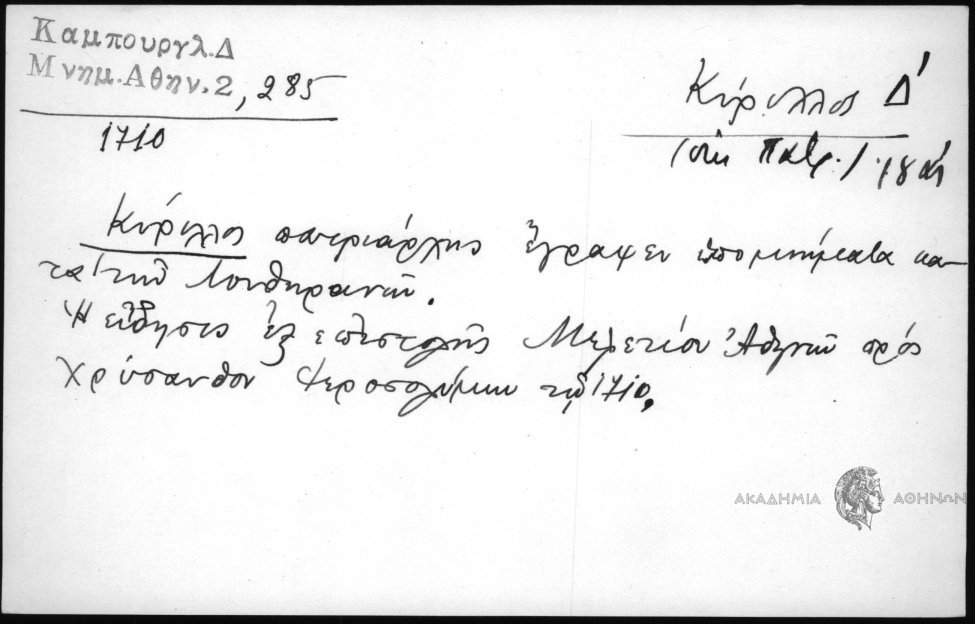 Καμπουργλ.Δ
Μνημ.Αθην.2, 285
1710
Κύριλλος Δ'
Κύριλλος πατριάρχης ἔγραψεν ὑπομνήματα κα-
τὰ τῶν Λουθηρανῶν.
Ἡ εἴδησις ἐξ ἐπιστολῆς Μελετίου Ἀθηνῶν πρός
Χρύσανθον Ἱεροσολύμων τῷ 1710.
ΑΚΑΔΗΜΙΑ ΑΘΗΝΩΝ